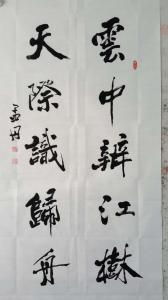 雲中辨江樹
天際識歸舟
孟丹